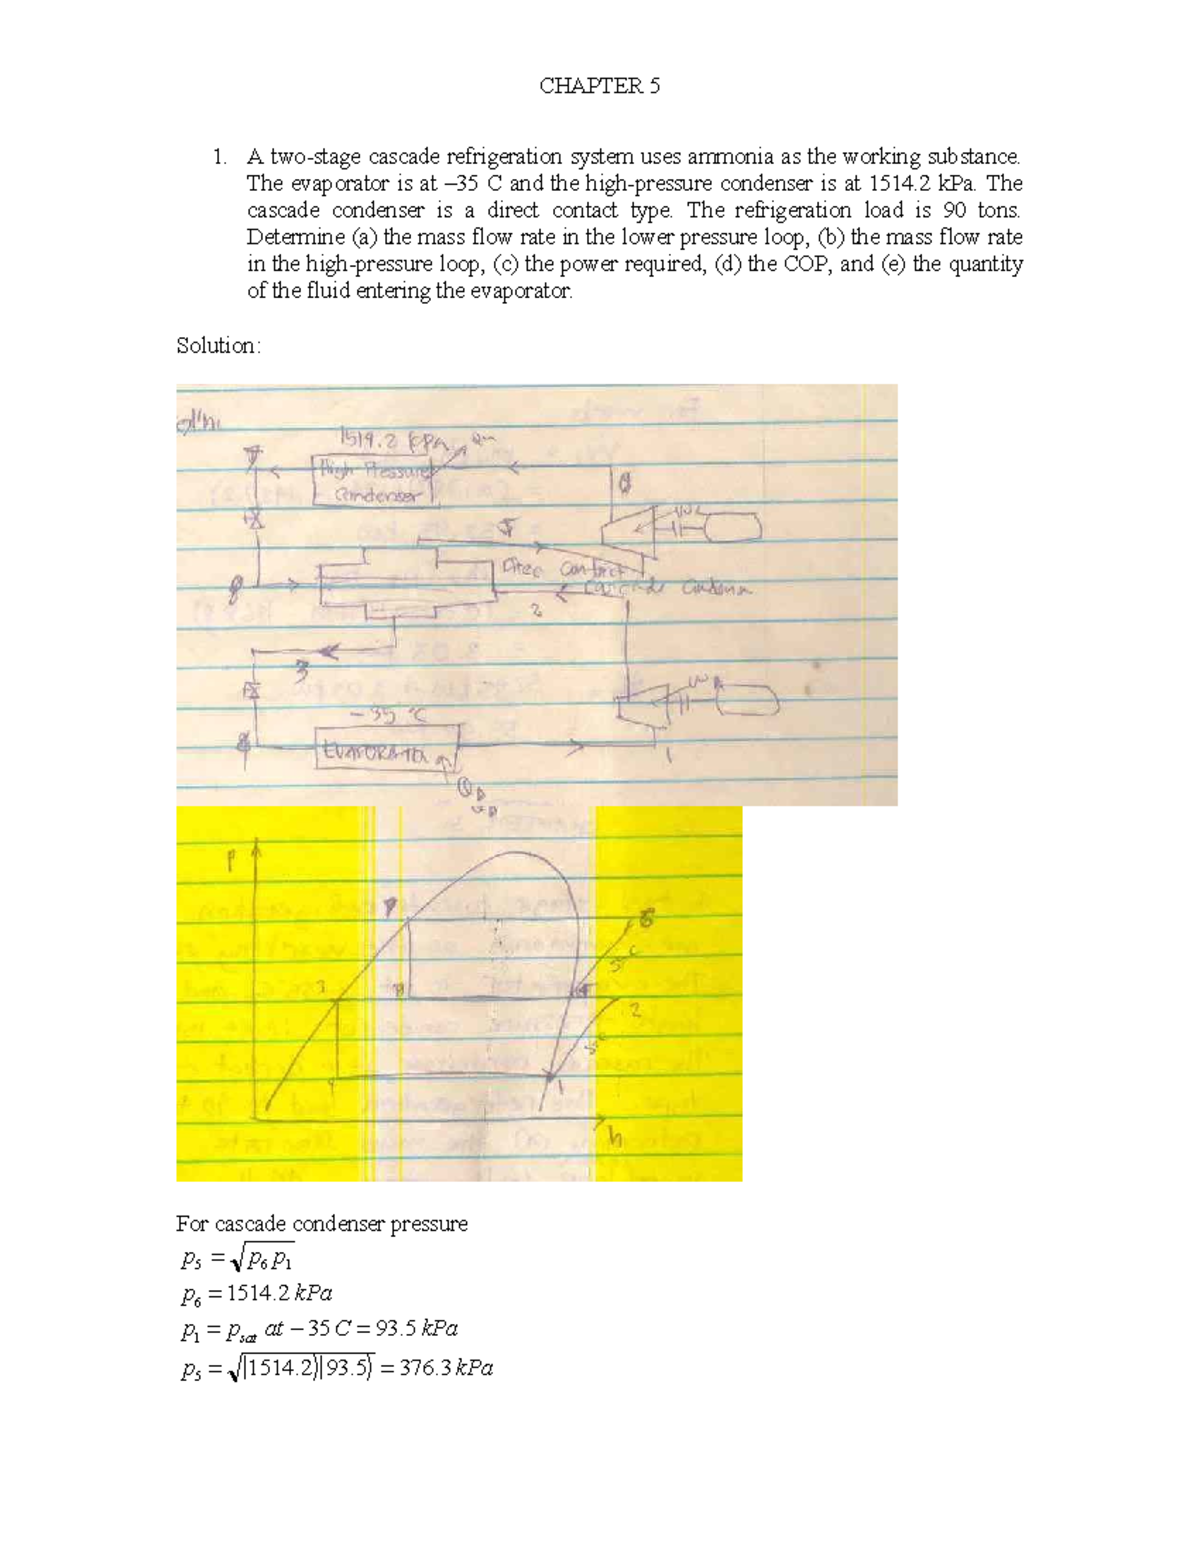 CHAPTER 5
1. A two-stage cascade refrigeration system uses ammonia as the working substance.
The evaporator is at –35 C and the high-pressure condenser is at 1514.2 kPa. The
cascade condenser is a direct contact type. The refrigeration load is 90 tons.
Determine (a) the mass flow rate in the lower pressure loop, (b) the mass flow rate
in the high-pressure loop, (c) the power required, (d) the COP, and (e) the quantity
of the fluid entering the evaporator.
Solution:
sol'n:
1514.2 kPa
High Pressure
Condenser
5
Direc Contact
Cascade Condenser
8
2
3
-35 °C
EVAPORATOR
1
P
3
8
6
S=C
2
S=C
1
h
For cascade condenser pressure
p5 = √p6 p1
p6 = 1514.2 kPa
p1 = psat at – 35 C = 93.5 kPa
p5 = √(1514.2)(93.5) = 376.3 kPa